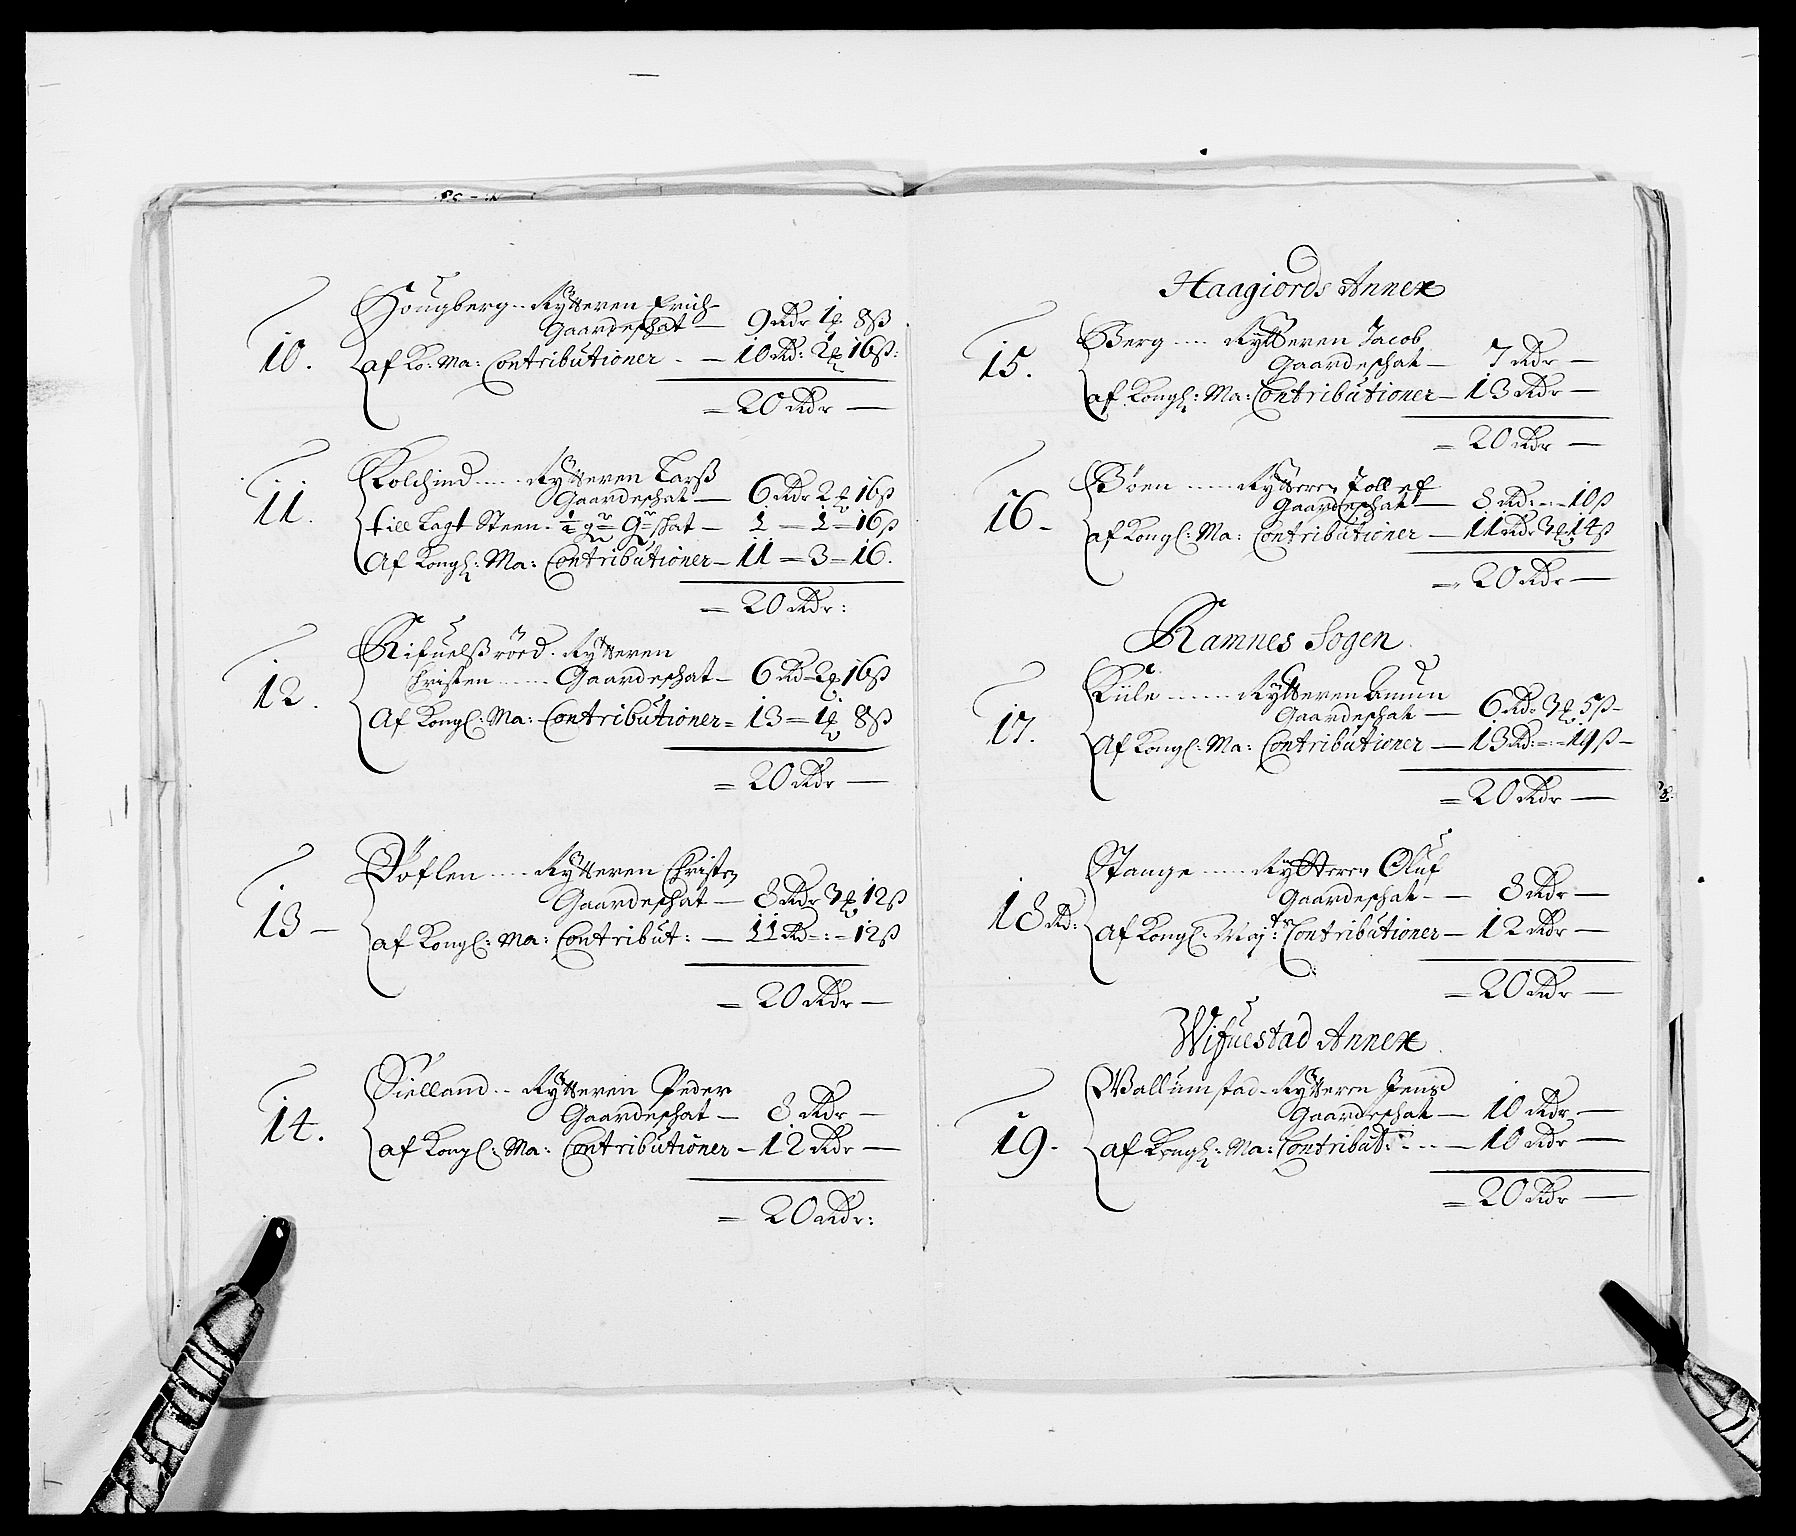 10. Hougberg - Rytteren Erich
Gaardeschat — 9 Rdr 1 ꝑ 8 ß
af Ko: Ma: Contributioner - — 10 Rd: 2 ꝑ 16 ß:
= 20 Rdr —
11. Kolchind .... Rytteren Larß
Gaardeschat — 6 Rdr 2 ꝑ 16 ß
till Lagt Steen - ½ gr G: schat — 1 = 1 = 16 ß
Af Kongl: Ma: Contributioner — 11 = 3 = 16.
= 20 Rdr:
12. Rifuelßröed. Rytteren
Christen ...... Gaardeschat — 6 Rd - 2 ꝑ 16 ß
Af Kongl: Ma: Contributioner = 13 = 1 ꝑ 8 ß
= 20 Rdr —
13 — Döflen .... Rytteren Christen
Gaardeschat — 8 Rdr 3 ꝑ 12 ß
af Kongl: Ma: Contribut: — 11 Rd - : - 12 ß
= 20 Rdr —
14. Sielland .. Rytteren Peder
Gaardeschat — 8 Rdr —
af Kongl: Ma: Contributioner — 12 Rdr —
= 20 Rdr:
Haagiords Annex
15. Berg .... Rytteren Jacob
Gaardeschat — 7 Rdr —
af Kongl: Ma: Contributioner — 13 Rdr —
= 20 Rdr —
16 - Böen ..... Rytteren Tollef
Gaardeschat — 8 Rd: - : - 10 ß
af Kongl: Ma: Contributioner — 11 Rdr 3 ꝑ 14 ß
= 20 Rdr —
Ramnes Sogen
17. Kiile ...... Rytteren Amun
Gaardeschat — 6 Rdr 3 ꝑ 5 ß —
Af Kongl: Ma: Contributioner — 13 Rd: - : - 19 ß —
= 20 Rdr —
18 Rd: Stange ..... Rytteren Oluf
Gaardeschat - — 8 Rdr —
af Kongl: Maj:ts Contributioner — 12 Rdr —
= 20 Rdr —
Wifuestad Annex
19 - Wallumstad - Rytteren Jenß
Gaardeschat — 10 Rdr —
af Kongl: Ma: Contribut: - - - — 10 Rdr —
= 20 Rdr —